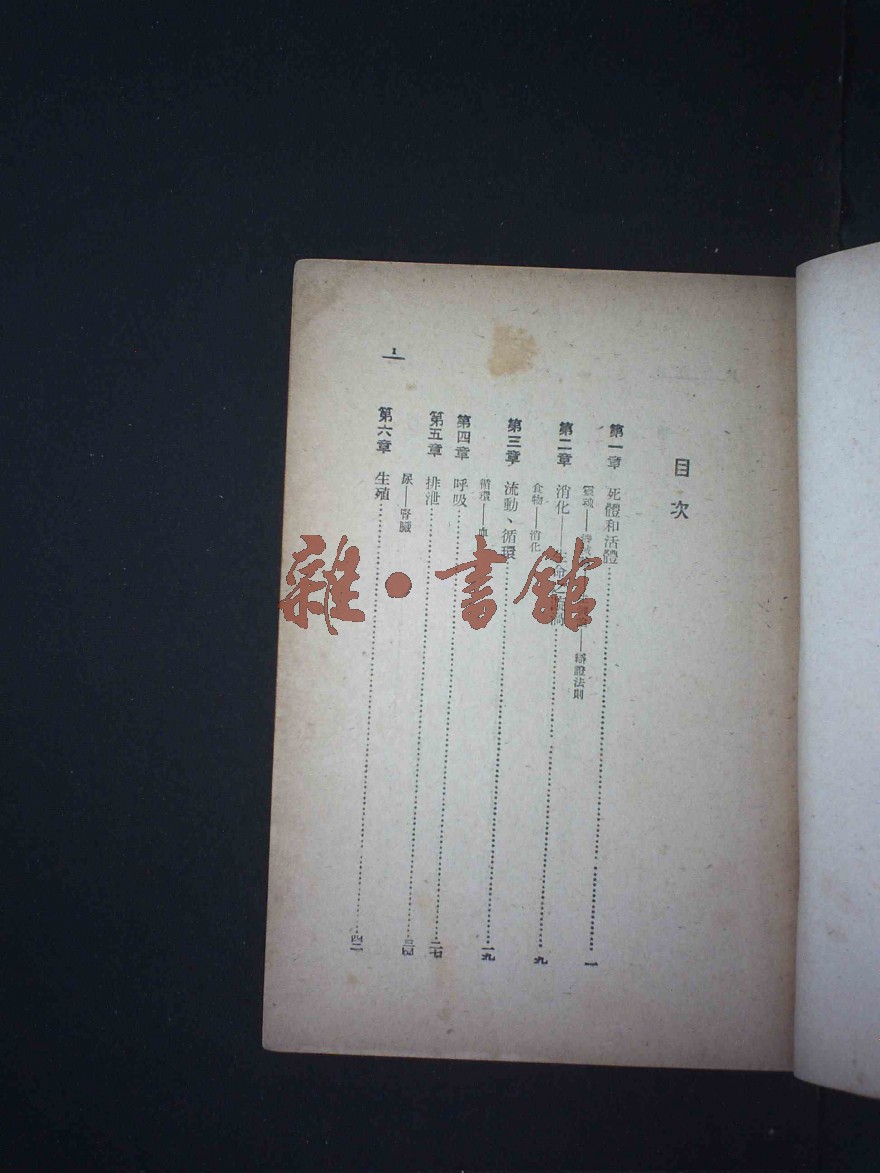 目次
第一章 死體和活體……一
靈魂——辯證法則
第二章 消化——生命……九
食物——消化
第三章 流動、循環……一九
循環——血
第四章 呼吸……二七
第五章 排泄……三四
尿——腎臟
第六章 生殖……四二
1
雜·書館